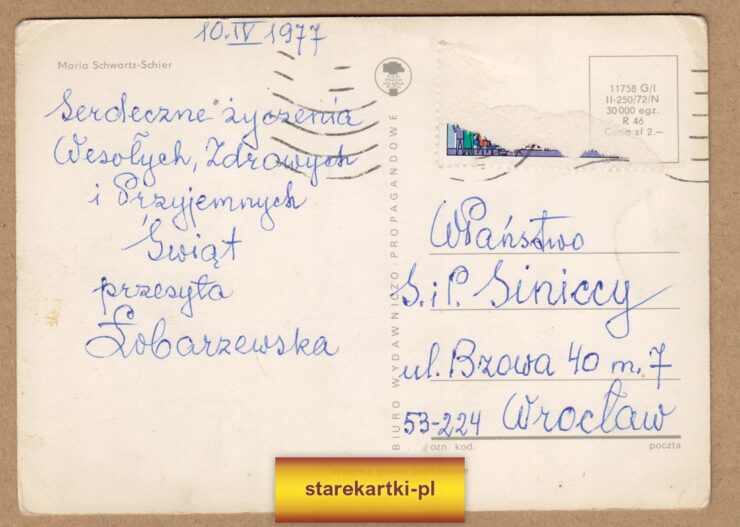 10.IV 1977
Maria Schwartz-Schier
Serdeczne życzenia
Wesołych, Zdrowych
i Przyjemnych
Świąt
przesyła
Łobarzewska
BIURO WYDAWNICZO-PROPAGANDOWE
11758 G/I
II-250/72/N
30 000 egz.
R 46
Cena zł 2.—
WPaństwo
S. i P. Siniccy
ul. Bzowa 40 m. 7
53-224 Wrocław
ozn. kod. poczta
starekartki-pl